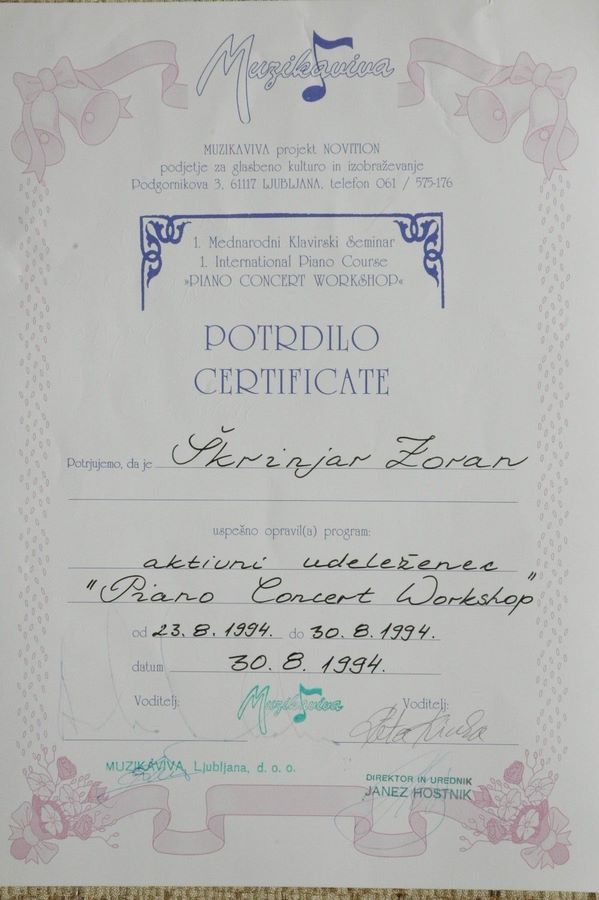 Muzikaviva
MUZIKAVIVA projekt NOVITION
podjetje za glasbeno kulturo in izobraževanje
Podgornikova 3, 61117 LJUBLJANA, telefon 061 / 575-176
1. Mednarodni Klavirski Seminar
1. International Piano Course
»PIANO CONCERT WORKSHOP«
POTRDILO
CERTIFICATE
Potrjujemo, da je Škrinjar Zoran
uspešno opravil(a) program:
aktivni udeleženec
"Piano Concert Workshop"
od 23. 8. 1994. do 30. 8. 1994.
datum 30. 8. 1994.
Voditelj: Muzikaviva Voditelj:
MUZIKAVIVA, Ljubljana, d. o. o.
DIREKTOR IN UREDNIK
JANEZ HOSTNIK